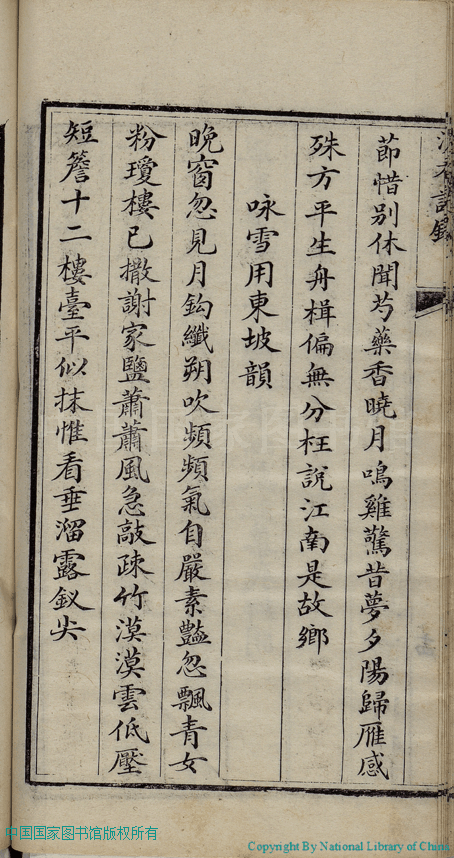 節惜別休聞芍藥香曉月鳴雞驚昔夢夕陽歸雁感
殊方平生舟楫偏無分枉說江南是故鄉
咏雪用東坡韻
晚窗忽見月鈎纖朔吹頻頻氣自嚴素豔忽飄青女
粉瓊樓已撒謝家鹽蕭蕭風急敲疎竹漠漠雲低壓
短簷十二樓臺平似抹惟看垂溜露釵尖
中国国家图书馆版权所有
Copyright By National Library of China